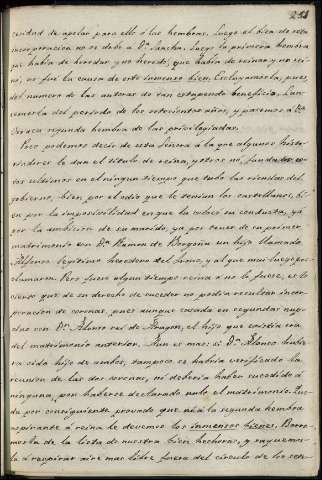 251
cesidad de apelar para ello a las hembras. Luego el bien de esta
incorporacion no se debe a Dª. Sancha. Luego la primera hembra
qe. habia de heredar y no heredó, que habia de reinar y no rei-
nó, no fue la causa de este inmenso bien. Excluyamosla, pues
del numero de las autoras de tan estupendo beneficio. Lan-
cemosla del periodo de los setecientos años, y pasemos a Dª.
Urraca segunda hembra de las privilegiadas.
Poco podemos decir de esta Señora á la que algunos histo-
riadores le dan el titulo de reina, y otros no, fundados va-
rios en el ningun tiempo que tubo las riendas del
gobierno, bien por el odio que le tenian los castellanos, bi-
en por la imposibilidad en que la colocó su conducta, yá
por la ambicion de su marido, ya por tener de su primer
matrimonio con Dn. Ramon de Borgoña un hijo llamado
Alfonso legitimo heredero del Trono, y al que muy luego pro-
clamaron. Pero fuese algun tiempo reina ó no lo fuese, es lo
cierto que de su derecho de suceder no podia resultar incor-
poracion de coronas, pues aunque casada en segundas nup-
cias con Dn. Alonso rei de Aragon, el hijo que existia era
del matrimonio anterior. Aun es mas: si Dn. Alonso hubie-
ra sido hijo de ambos, tampoco se habria verificado la
reunion de las dos coronas, ni deberia haber sucedido á
ninguna, por haberse declarado nulo el matrimonio. Que-
da por consiguiente provado que ni á la segunda hembra
aspirante á reina le devemos los inmensos bienes. Borre-
mosla de la lista de nuestra bien hechoras, y vayamos-
á respirar aire mas libre fuera del circulo de los sete-